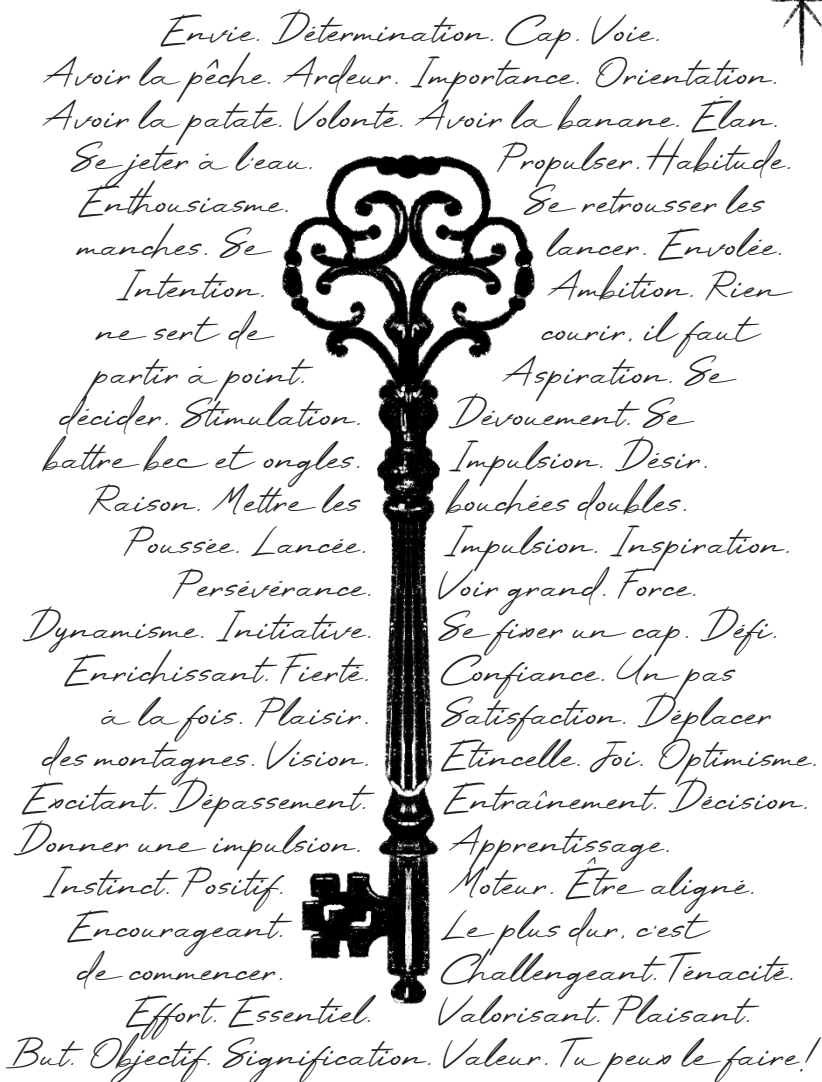 Envie. Détermination. Cap. Voie.
Avoir la pêche. Ardeur. Importance. Orientation.
Avoir la patate. Volonté. Avoir la banane. Élan.
Se jeter à l'eau. Propulser. Habitude.
Enthousiasme. Se retrousser les
manches. Se lancer. Envolée.
Intention. Ambition. Rien
ne sert de courir, il faut
partir à point. Aspiration. Se
décider. Stimulation. Dévouement. Se
battre bec et ongles. Impulsion. Désir.
Raison. Mettre les bouchées doubles.
Poussée. Lancée. Impulsion. Inspiration.
Persévérance. Voir grand. Force.
Dynamisme. Initiative. Se fixer un cap. Défi.
Enrichissant. Fierté. Confiance. Un pas
à la fois. Plaisir. Satisfaction. Déplacer
des montagnes. Vision. Etincelle. Joi. Optimisme.
Excitant. Dépassement. Entraînement. Décision.
Donner une impulsion. Apprentissage.
Instinct. Positif. Moteur. Être aligné.
Encourageant. Le plus dur, c'est
de commencer. Challengeant. Ténacité.
Effort. Essentiel. Valorisant. Plaisant.
But. Objectif. Signification. Valeur. Tu peux le faire!